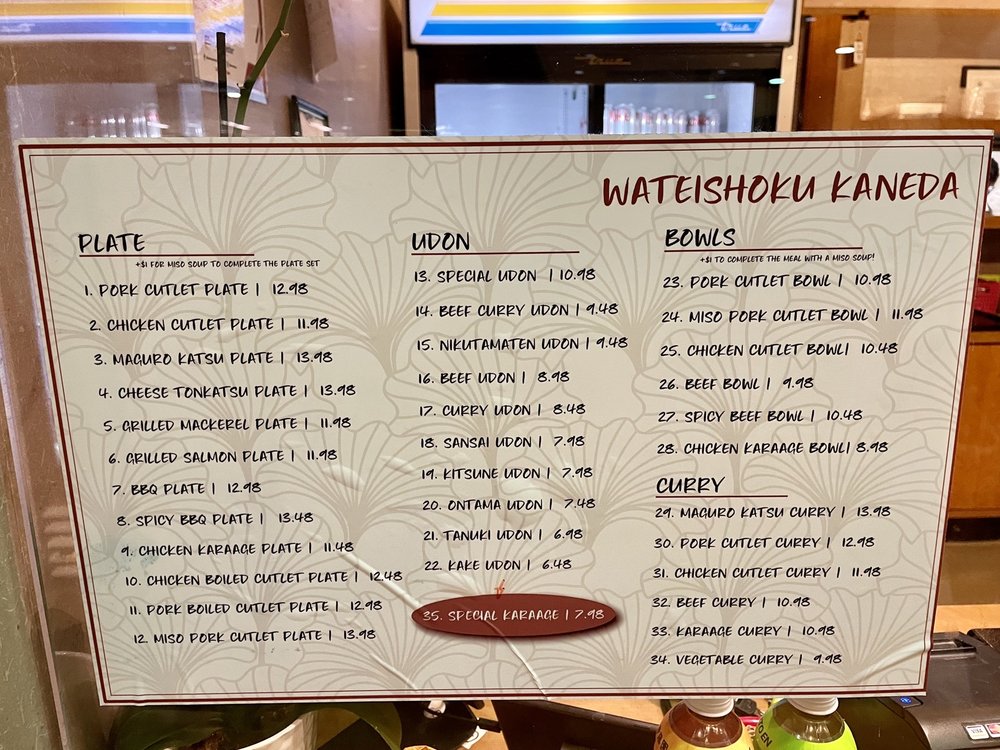 true
true
WATEISHOKU KANEDA
PLATE
+$1 FOR MISO SOUP TO COMPLETE THE PLATE SET
1. PORK CUTLET PLATE | 12.98
2. CHICKEN CUTLET PLATE | 11.98
3. MAGURO KATSU PLATE | 13.98
4. CHEESE TONKATSU PLATE | 13.98
5. GRILLED MACKEREL PLATE | 11.98
6. GRILLED SALMON PLATE | 11.98
7. BBQ PLATE | 12.98
8. SPICY BBQ PLATE | 13.48
9. CHICKEN KARAAGE PLATE | 11.48
10. CHICKEN BOILED CUTLET PLATE | 12.48
11. PORK BOILED CUTLET PLATE | 12.98
12. MISO PORK CUTLET PLATE | 13.98
UDON
13. SPECIAL UDON | 10.98
14. BEEF CURRY UDON | 9.48
15. NIKUTAMATEN UDON | 9.48
16. BEEF UDON | 8.98
17. CURRY UDON | 8.48
18. SANSAI UDON | 7.98
19. KITSUNE UDON | 7.98
20. ONTAMA UDON | 7.48
21. TANUKI UDON | 6.98
22. KAKE UDON | 6.48
35. SPECIAL KARAAGE | 7.98
BOWLS
+$1 TO COMPLETE THE MEAL WITH A MISO SOUP!
23. PORK CUTLET BOWL | 10.98
24. MISO PORK CUTLET BOWL | 11.98
25. CHICKEN CUTLET BOWL| 10.48
26. BEEF BOWL | 9.98
27. SPICY BEEF BOWL | 10.48
28. CHICKEN KARAAGE BOWL| 8.98
CURRY
29. MAGURO KATSU CURRY | 13.98
30. PORK CUTLET CURRY | 12.98
31. CHICKEN CUTLET CURRY | 11.98
32. BEEF CURRY | 10.98
33. KARAAGE CURRY | 10.98
34. VEGETABLE CURRY | 9.98